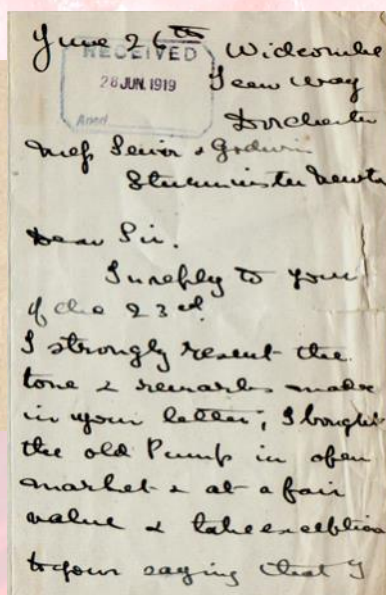 June 26th
RECEIVED
28 JUN. 1919
Ansd.
Widcombe
Icen Way
Dorchester
Mess Senior & Godwin
Sturminster Newton
Dear Sir.
In reply to your
of the 23rd
I strongly resent the
tone & remarks made
in your letter; I bought
the old Pump in open
market & at a fair
value & take exception
to your saying that I